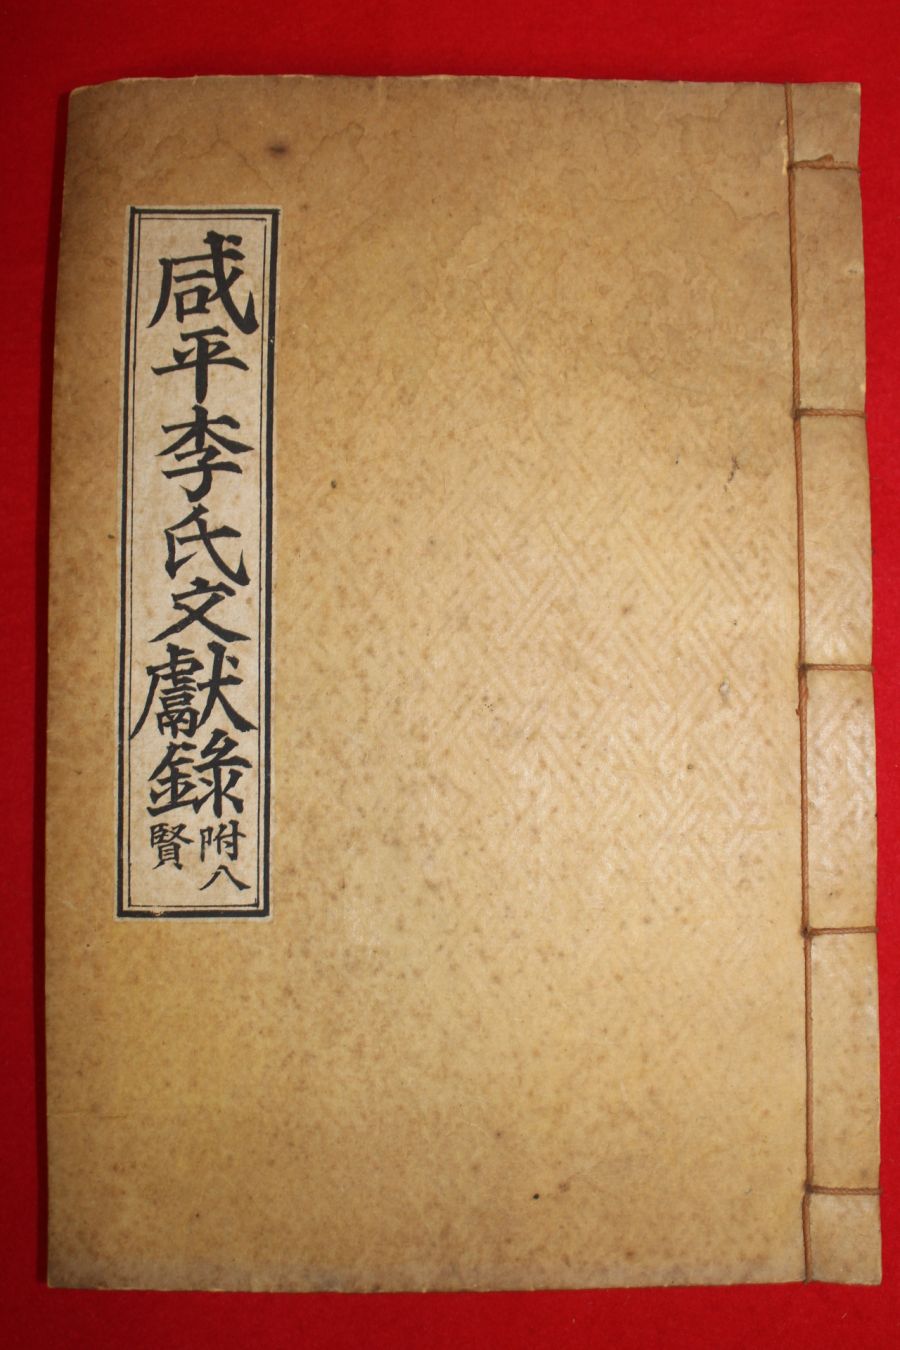 咸平李氏文獻錄
附八
賢